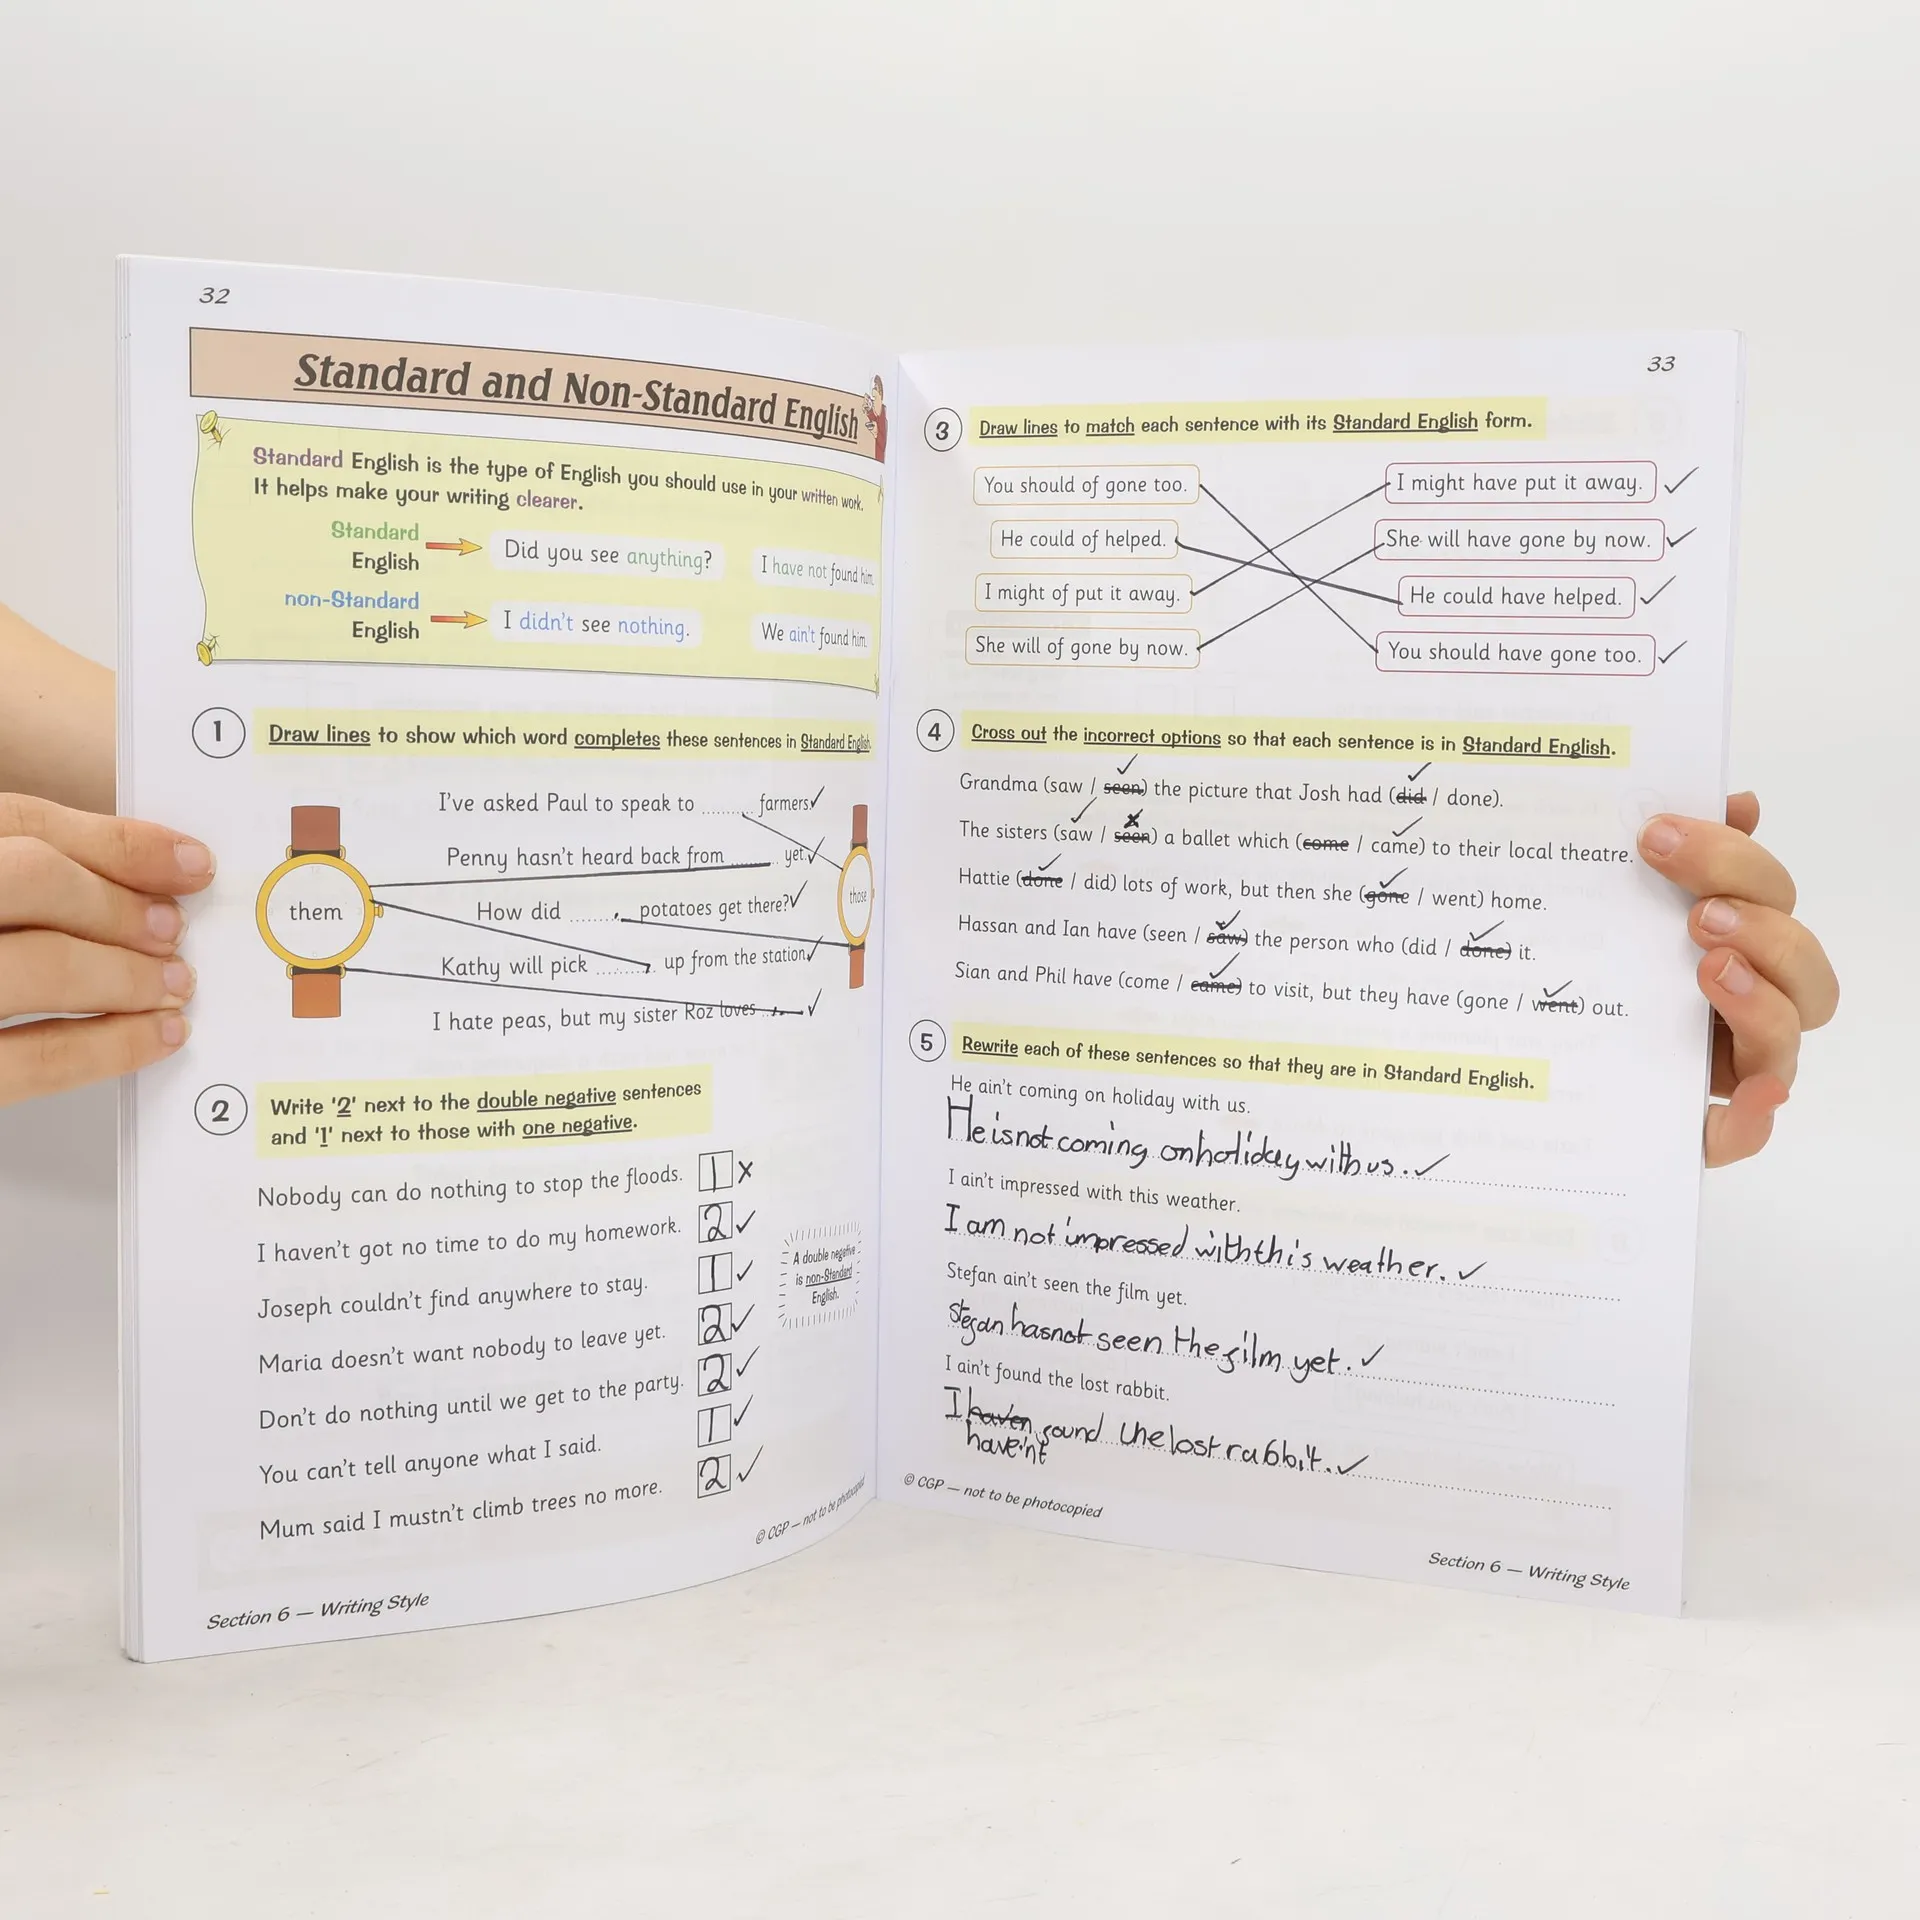 32
Standard and Non-Standard English
Standard English is the type of English you should use in your written work.
It helps make your writing clearer.
Standard English
Did you see anything?
I have not found him.
non-Standard English
I didn't see nothing.
We ain't found him.
1
Draw lines to show which word completes these sentences in Standard English.
them
those
I've asked Paul to speak to .......... farmers.
Penny hasn't heard back from .......... yet.
How did .......... potatoes get there?
Kathy will pick .......... up from the station.
I hate peas, but my sister Roz loves ..........
2
Write '2' next to the double negative sentences
and '1' next to those with one negative.
Nobody can do nothing to stop the floods. 1 x
I haven't got no time to do my homework. 2 ✓
Joseph couldn't find anywhere to stay. 1 ✓
Maria doesn't want nobody to leave yet. 2 ✓
Don't do nothing until we get to the party. 2 ✓
You can't tell anyone what I said. 1 ✓
Mum said I mustn't climb trees no more. 2 ✓
A double negative
is non-Standard
English.
© CGP — not to be photocopied
Section 6 — Writing Style
33
3
Draw lines to match each sentence with its Standard English form.
You should of gone too.
He could of helped.
I might of put it away.
She will of gone by now.
I might have put it away. ✓
She will have gone by now. ✓
He could have helped. ✓
You should have gone too. ✓
4
Cross out the incorrect options so that each sentence is in Standard English.
Grandma (saw / seen) the picture that Josh had (did / done).
The sisters (saw / seen) a ballet which (come / came) to their local theatre.
Hattie (done / did) lots of work, but then she (gone / went) home.
Hassan and Ian have (seen / saw) the person who (did / done) it.
Sian and Phil have (come / came) to visit, but they have (gone / went) out.
5
Rewrite each of these sentences so that they are in Standard English.
He ain't coming on holiday with us.
He is not coming on holiday with us. ✓
I ain't impressed with this weather.
I am not impressed with this weather. ✓
Stefan ain't seen the film yet.
Stefan has not seen the film yet. ✓
I ain't found the lost rabbit.
I haven found the lost rabbit. ✓
have'nt
© CGP — not to be photocopied
Section 6 — Writing Style